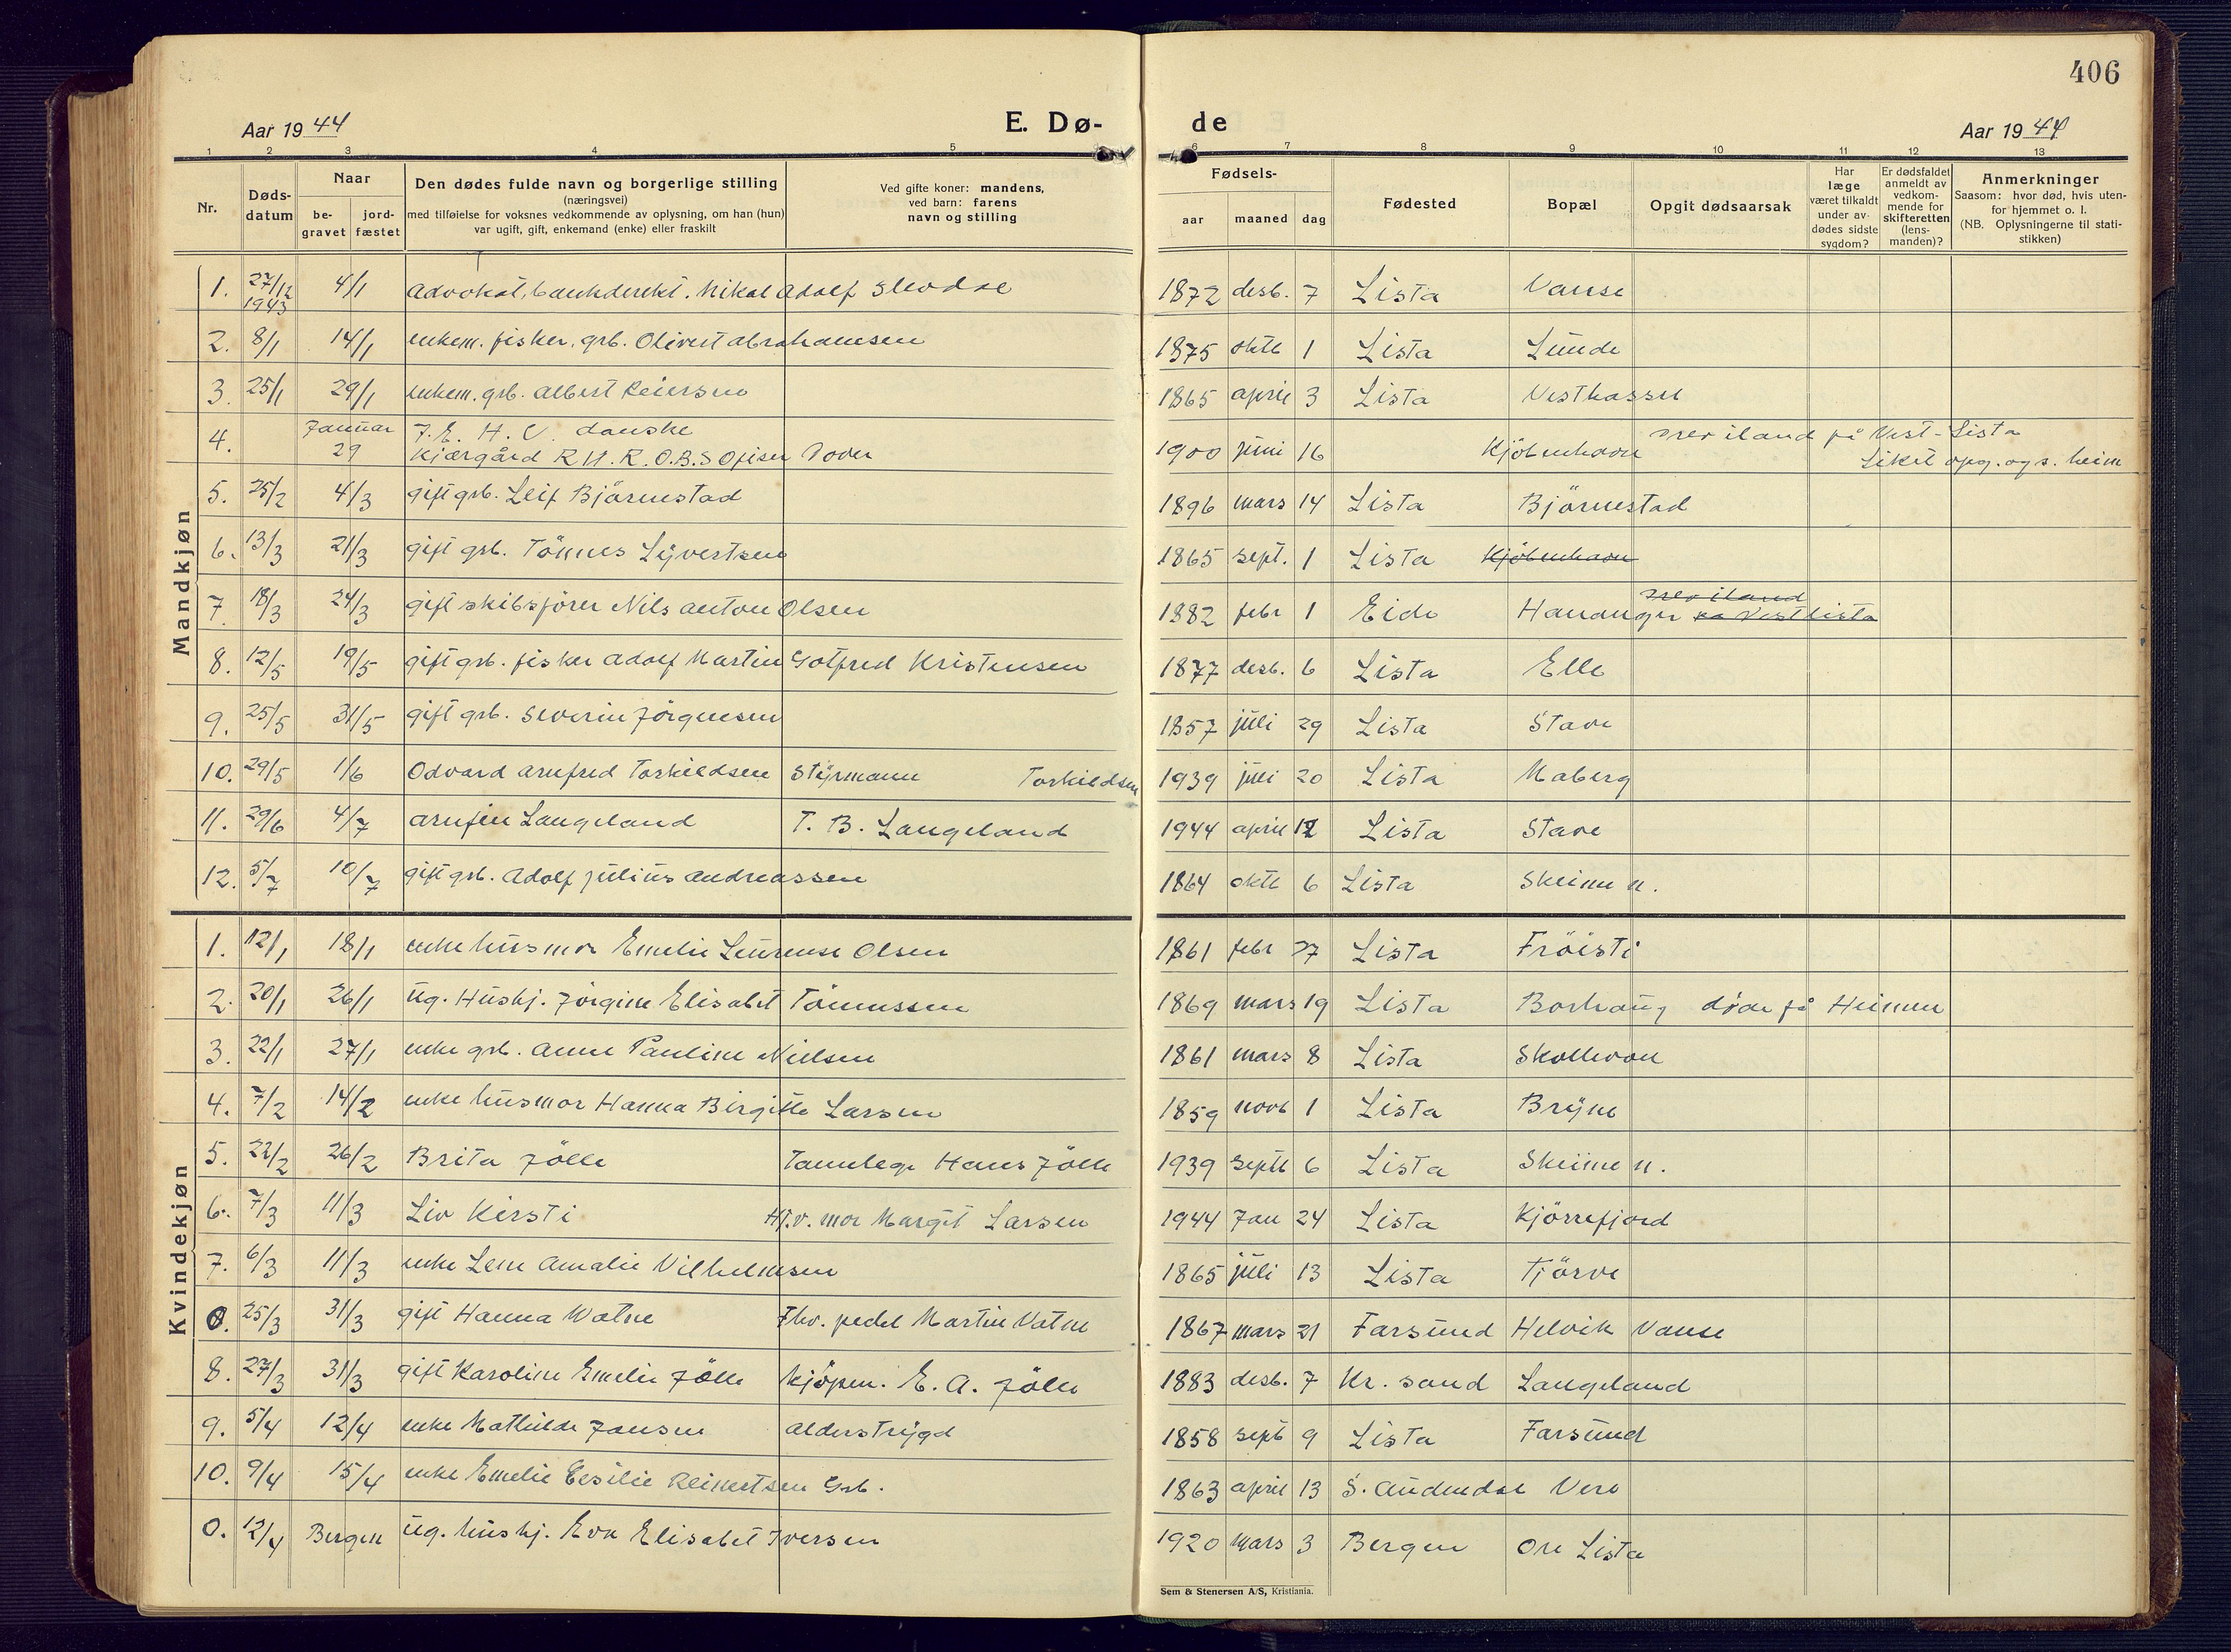 406
Aar 1944 E. Dø- de Aar 1944
1 2 3 4 5 6 7 8 9 10 11 12 13
Nr.
Døds-
datum
Naar
be-
gravet
jord-
fæstet
Den dødes fulde navn og borgerlige stilling
(næringsvei)
med tilføielse for voksnes vedkommende av oplysning, om han (hun)
var ugift, gift, enkemand (enke) eller fraskilt
Ved gifte koner: mandens,
ved barn: farens
navn og stilling
Fødsels-
aar maaned dag
Fødested
Bopæl
Opgit dødsaarsak
Har
læge
været tilkaldt
under av-
dødes sidste
sygdom?
Er dødsfaldet
anmeldt av
vedkom-
mende for
skifteretten
(lens-
manden)?
Anmerkninger
Saasom: hvor død, hvis uten-
for hjemmet o. l.
(NB. Oplysningerne til stati-
stikken)
Mandkjøn
1. 27/12 1943 4/1 advokat, bankdirekt. Nikal Adolf 1872 desb. 7 Lista Vanse
2. 8/1 14/1 enkem. fisker, grb. Olivert Abrahamsen 1875 oktb 1 Lista Lunde
3. 25/1 29/1 enkem. grb. Albert Reiersen 1865 april 3 Lista Vesthassel
4. Januar 29 J. E. H. V. danske
Kjærgård R H. R. O. B. S Ofiser Dover 1900 juni 16 Kjöbenhavn drev iland på Vest-Lista
Liket opg. ogs. heim
5. 25/2 4/3 gift grb. Leif Björnestad 1896 mars 14 Lista Björnestad
6. 13/3 21/3 gift grb. Tönnes Syvertsen 1865 sept. 1 Lista Kjöbenhavn
7. 18/3 24/3 gift skibsförer Nils Anton Olsen 1882 febr 1 Eide Hananger drev iland på Vest Lista
8. 12/5 19/5 gift grb. fisker Adolf Martin Gotfred Kristensen 1877 desb. 6 Lista Elle
9. 25/5 31/5 gift grb. Severin Jörgensen 1857 juli 29 Lista Stave
10. 29/5 1/6 Odvard Arnfred Torkildsen Styrmann Torkildsen 1939 juli 20 Lista Maberg
11. 29/6 4/7 Arnfin Langeland T. B. Langeland 1944 april 12 Lista Stave
12. 5/7 10/7 gift grb. Adolf Julius Andreassen 1864 oktb 6 Lista Skeime n.
Kvindekjøn
1. 12/1 18/1 enke husmor Emelie Laurense Olsen 1861 febr 27 Lista Fröisti
2. 20/1 26/1 ug. Hushj. Jörgine Elisabet Tönnessen 1869 mars 19 Lista Borhaug döde på Heimen
3. 22/1 27/1 enke grb. Anne Pauline Nielsen 1861 mars 8 Lista Skollevoll
4. 7/2 14/2 enke husmor Hanna Birgitte Larsen 1859 novb 1 Lista Bryne
5. 22/2 26/2 Brita Jölle Tannlege Hans Jölle 1939 septb 6 Lista Skeime n.
6. 7/3 11/3 Liv Kirsti Hj.v. mor Margit Larsen 1944 Jan 24 Lista Kjörrefjord
7. 6/3 11/3 enke Lene Amalie Vilhelmsen 1865 juli 13 Lista Tjörve
0. 25/3 31/3 gift Hanna Watne Fhv. pedel Martin Vatne 1867 mars 21 Farsund Helvik Vanse
8. 27/3 31/3 gift Karoline Emelie Jölle Kjöpm. E. A. Jölle 1883 desb. 7 Kr. sand Langeland
9. 5/4 12/4 enke Mathilde Jansen alderstrygd 1858 septb 9 Lista Farsund
10. 9/4 15/4 enke Emelie Cesilie Reinertsen Grb. 1863 april 13 S. Audnedal Vere
0. 12/4 Bergen ug. hushj. Eva Elisabet Iversen 1920 mars 3 Bergen Ore Lista
Sem & Stenersen A/S, Kristiania.